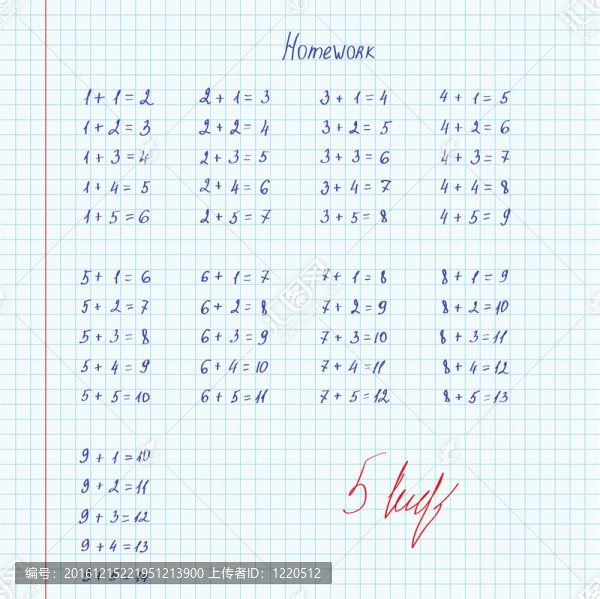 Homework
1 + 1 = 2 2 + 1 = 3 3 + 1 = 4 4 + 1 = 5
1 + 2 = 3 2 + 2 = 4 3 + 2 = 5 4 + 2 = 6
1 + 3 = 4 2 + 3 = 5 3 + 3 = 6 4 + 3 = 7
1 + 4 = 5 2 + 4 = 6 3 + 4 = 7 4 + 4 = 8
1 + 5 = 6 2 + 5 = 7 3 + 5 = 8 4 + 5 = 9
5 + 1 = 6 6 + 1 = 7 7 + 1 = 8 8 + 1 = 9
5 + 2 = 7 6 + 2 = 8 7 + 2 = 9 8 + 2 = 10
5 + 3 = 8 6 + 3 = 9 7 + 3 = 10 8 + 3 = 11
5 + 4 = 9 6 + 4 = 10 7 + 4 = 11 8 + 4 = 12
5 + 5 = 10 6 + 5 = 11 7 + 5 = 12 8 + 5 = 13
9 + 1 = 10
9 + 2 = 11
9 + 3 = 12
9 + 4 = 13
9 + 5 = 14
5
编号：20161215221951213900 上传者ID：1220512